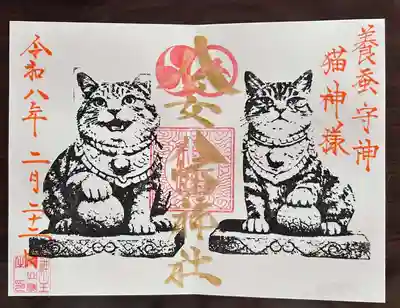 養蚕守神
猫神様
八幡神社
令和八年 二月二十二日